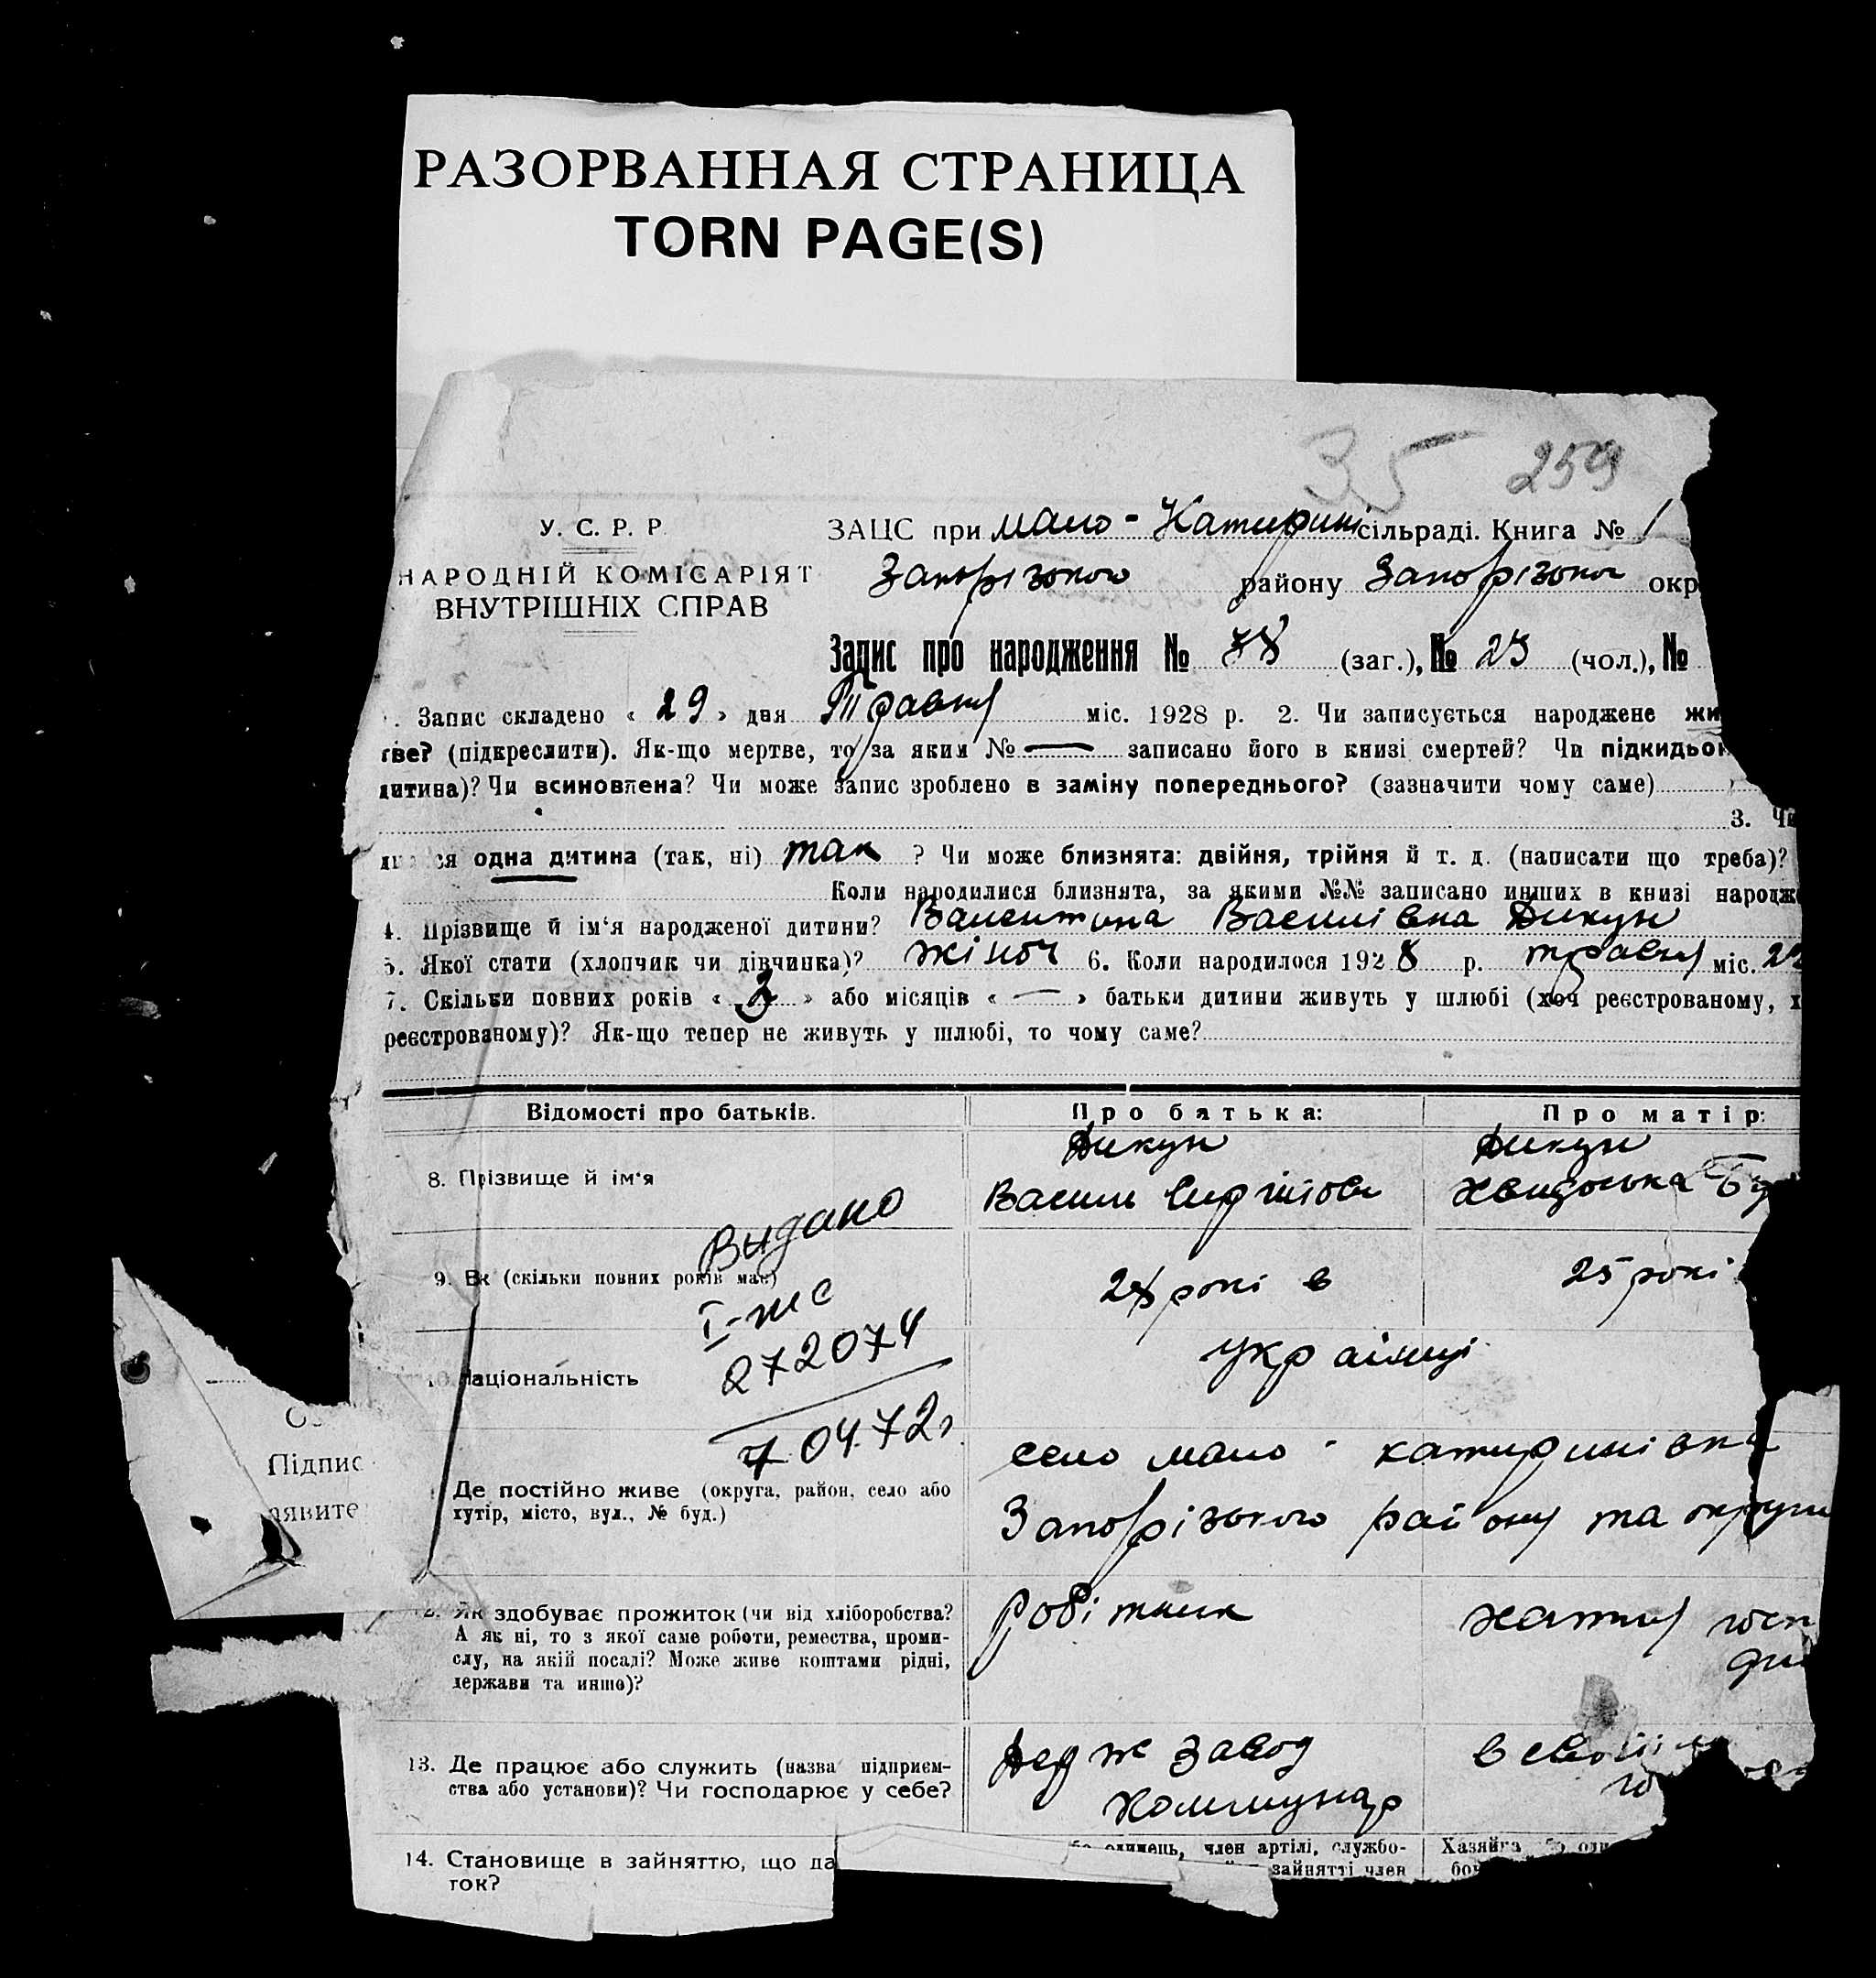 РАЗОРВАННАЯ СТРАНИЦА
TORN PAGE(S)
35 259
У. С. Р. Р.
НАРОДНІЙ КОМІСАРІЯТ
ВНУТРІШНІХ СПРАВ
ЗАЦС при мало-Катирині сільраді. Книга № 1
Запорізького району Запорізької окр
Запис про народження № 78 (заг.), № 23 (чол.), №
Запис складено « 29 » дня Травня міс. 1928 р. 2. Чи записується народжене жи
тве? (підкреслити). Як-що мертве, то за яким № — записано його в книзі смертей? Чи підкидьок
дитина)? Чи всиновлена? Чи може запис зроблено в заміну попереднього? (зазначити чому саме)
3. Чи
ся одна дитина (так, ні) так ? Чи може близнята: двійня, трійня й т. д. (написати що треба)?
Коли народилися близнята, за якими №№ записано инших в книзі народже
4. Прізвище й ім‘я народженої дитини? Валентина Василівна Дикун
5. Якої стати (хлопчик чи дівчинка)? жіноч 6. Коли народилося 1928 р. травня міс. 22
7. Скільки повних років « 2 » або місяців « — » батьки дитини живуть у шлюбі (хоч реєстрованому, х
реєстрованому)? Як-що тепер не живуть у шлюбі, то чому саме?
Відомості про батьків. Про батька: Про матір:
8. Прізвище й ім‘я
Дикун
Дикун
Видано
9. Вік (скільки повних років має)
28 років
25 рокі
І-жс
272074
7.04.72г
10. Національність
українці
село мало-катиринівка
Запорізького району та округи
Де постійно живе (округа, район, село або
хутір, місто, вул., № буд.)
12. Як здобуває прожиток (чи від хліборобства?
А як ні, то з якої саме роботи, ремества, проми-
слу, на якій посаді? Може живе коштами рідні,
держави та инше)?
робітник
хатня госп
13. Де працює або служить (назва підприєм-
ства або установи)? Чи господарює у себе?
Держ завод
Коммунар
14. Становище в зайняттю, що да
ток?
одинець, член артілі, службо-
зайнятті член
Хазяйка
Підпис
аявите